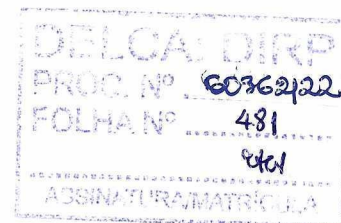 DELCA/DIRP
PROC. Nº 60362/22
FOLHA Nº 481
ASSINATURA/MATRÍCULA